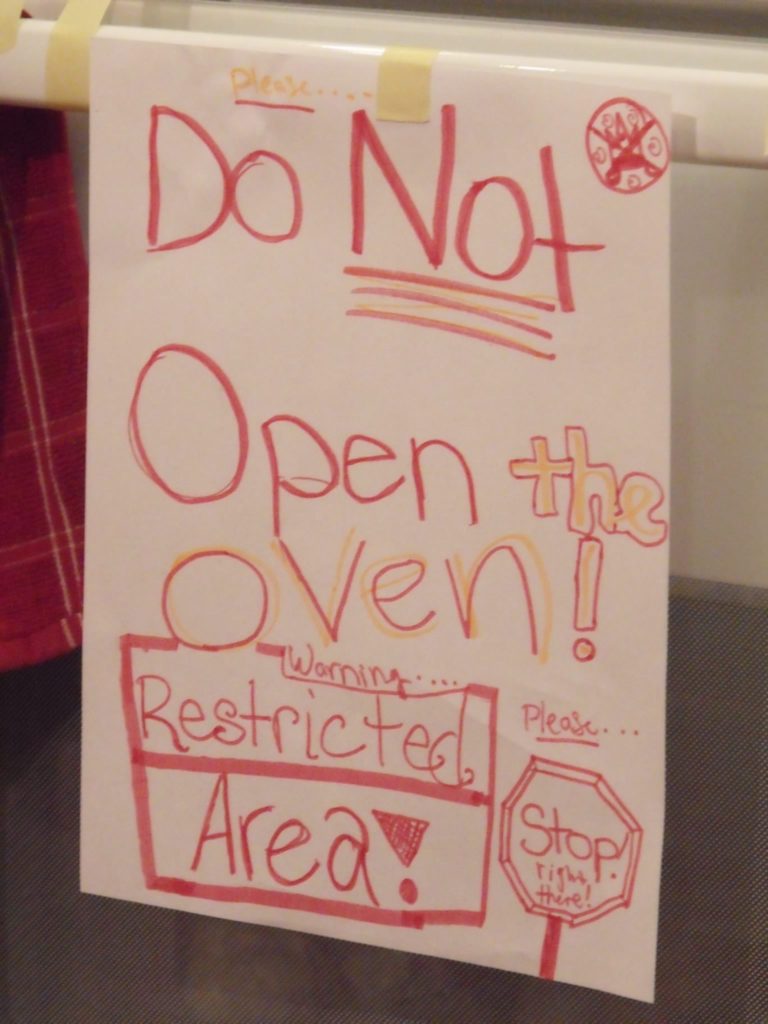 Please....
Do Not
Open the
oven!
Warning....
Restricted
Area!
Please...
Stop!
right
there!